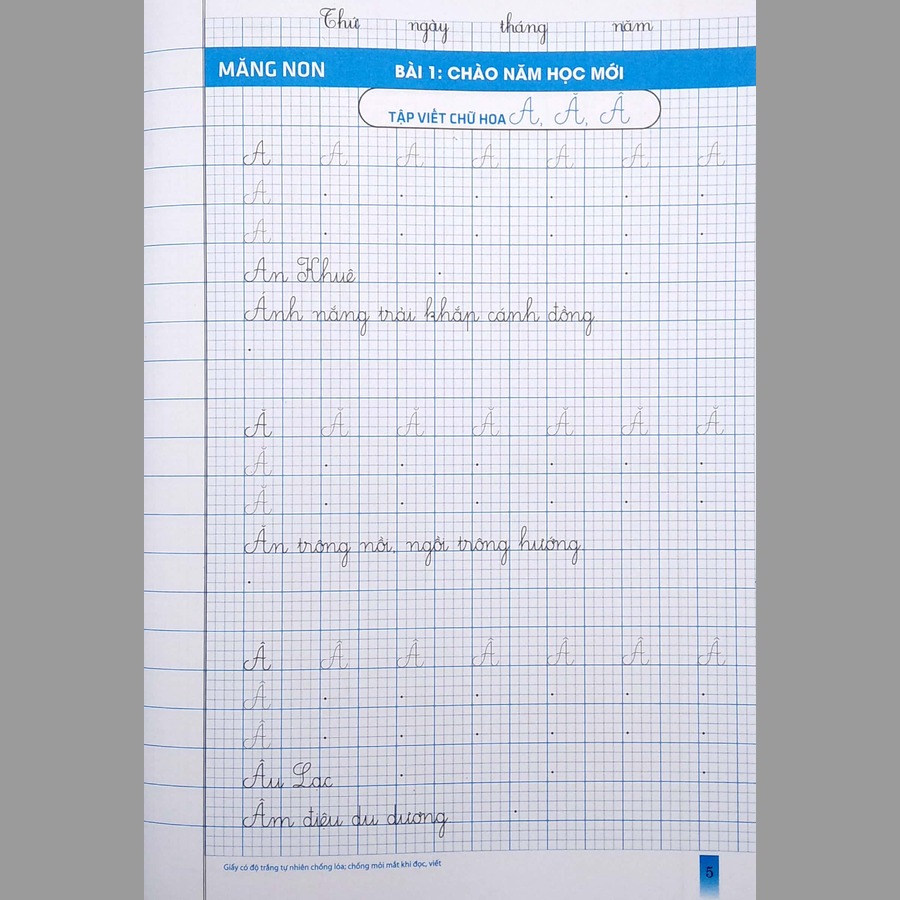 Thứ ngày tháng năm
MĂNG NON BÀI 1: CHÀO NĂM HỌC MỚI
TẬP VIẾT CHỮ HOA A, Ă, Â
A A A A A A A
A
A
An Khuê
Ánh nắng trải khắp cánh đồng
Ă Ă Ă Ă Ă Ă Ă
Ă
Ă
Ăn trông nồi, ngồi trông hướng
Â Â Â Â Â Â Â
Â
Â
Âu Lạc
Âm điệu du dương
Giấy có độ trắng tự nhiên chống lóa; chống mỏi mắt khi đọc, viết
5